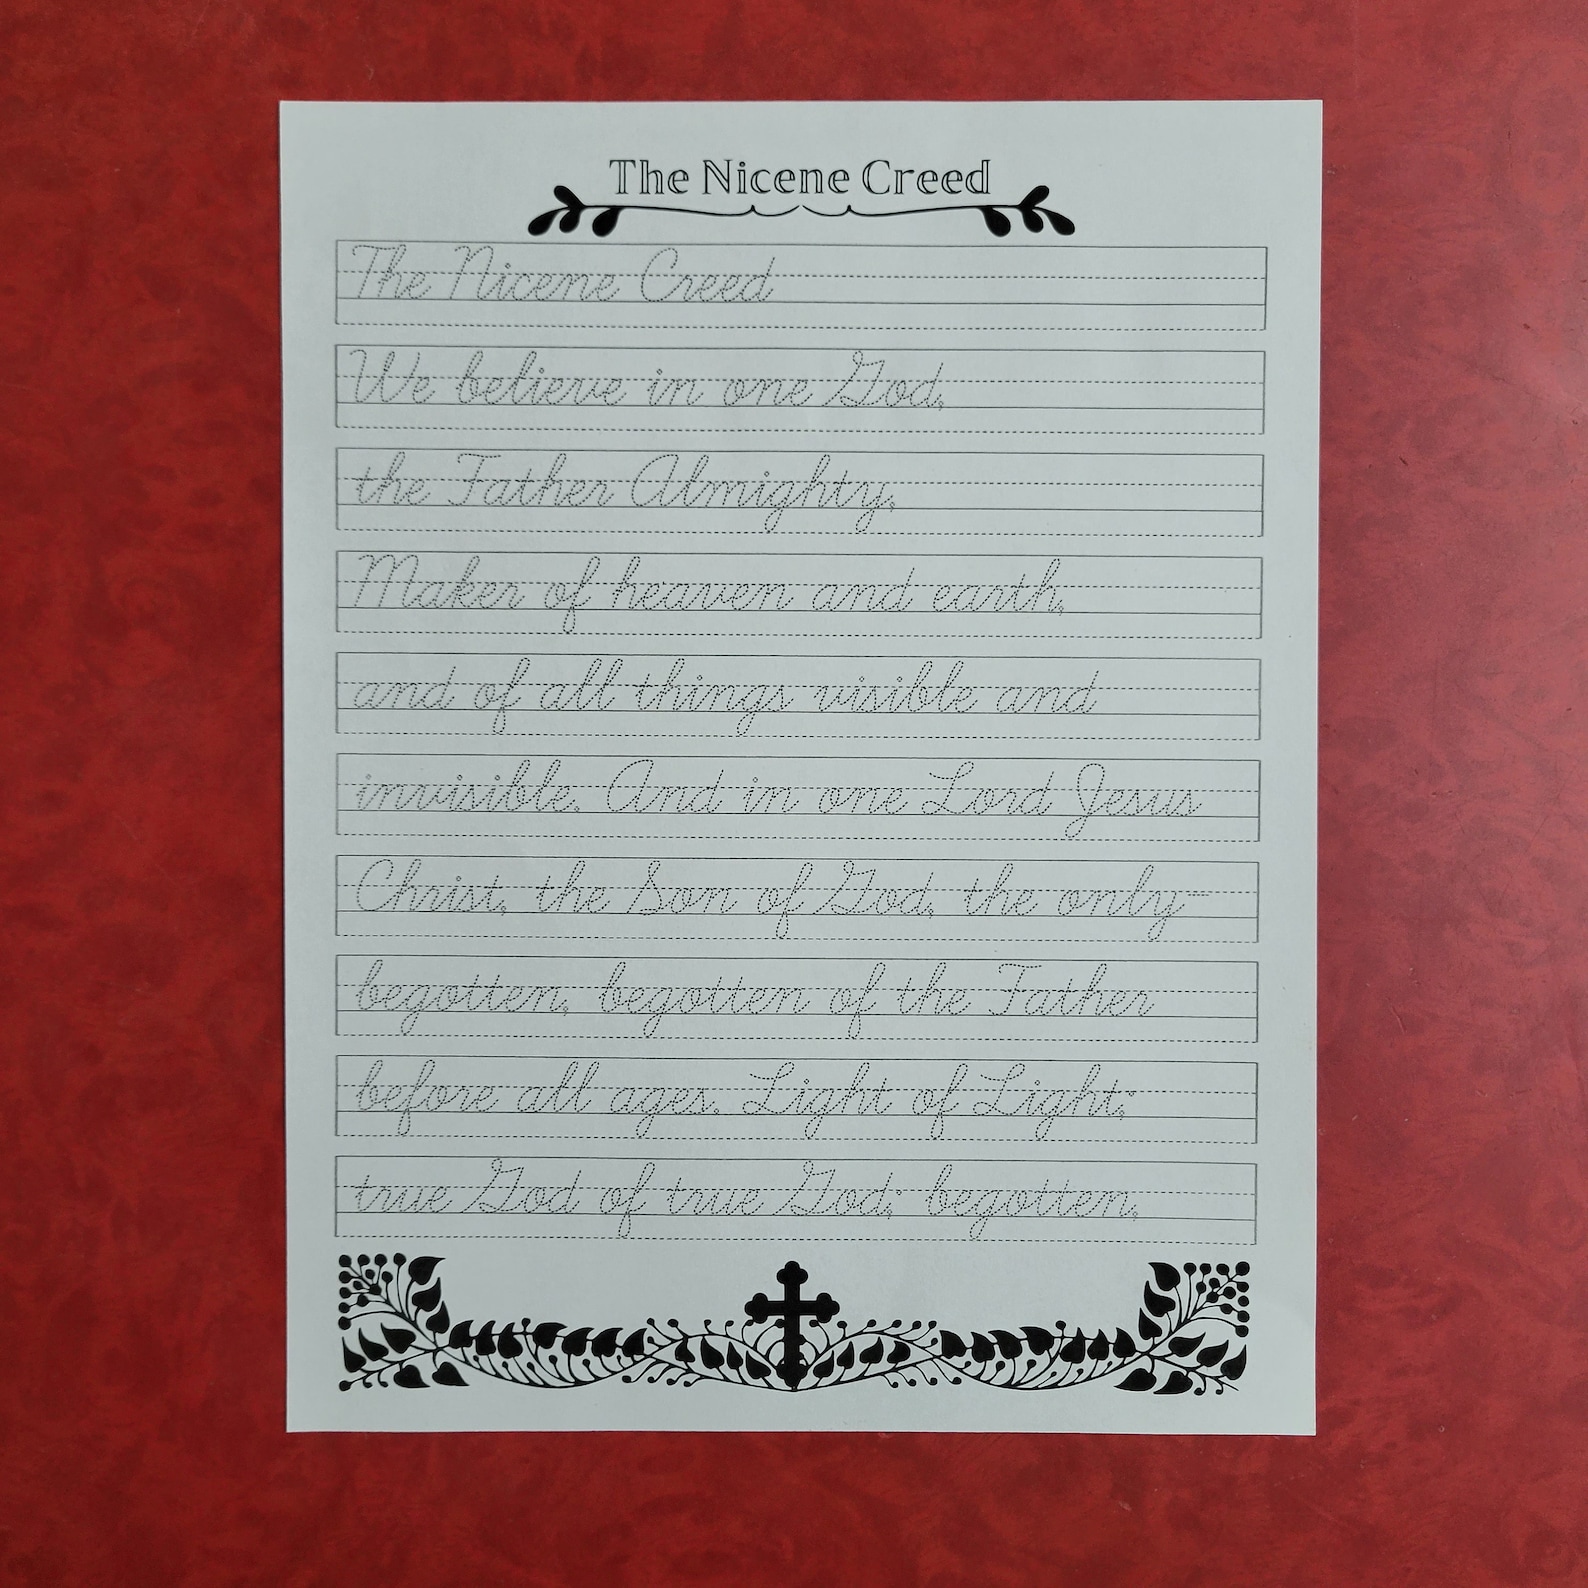 The Nicene Creed
The Nicene Creed
We believe in one God,
the Father Almighty,
Maker of heaven and earth,
and of all things visible and
invisible. And in one Lord Jesus
Christ, the Son of God, the only-
begotten, begotten of the Father
before all ages. Light of Light;
true God of true God; begotten,